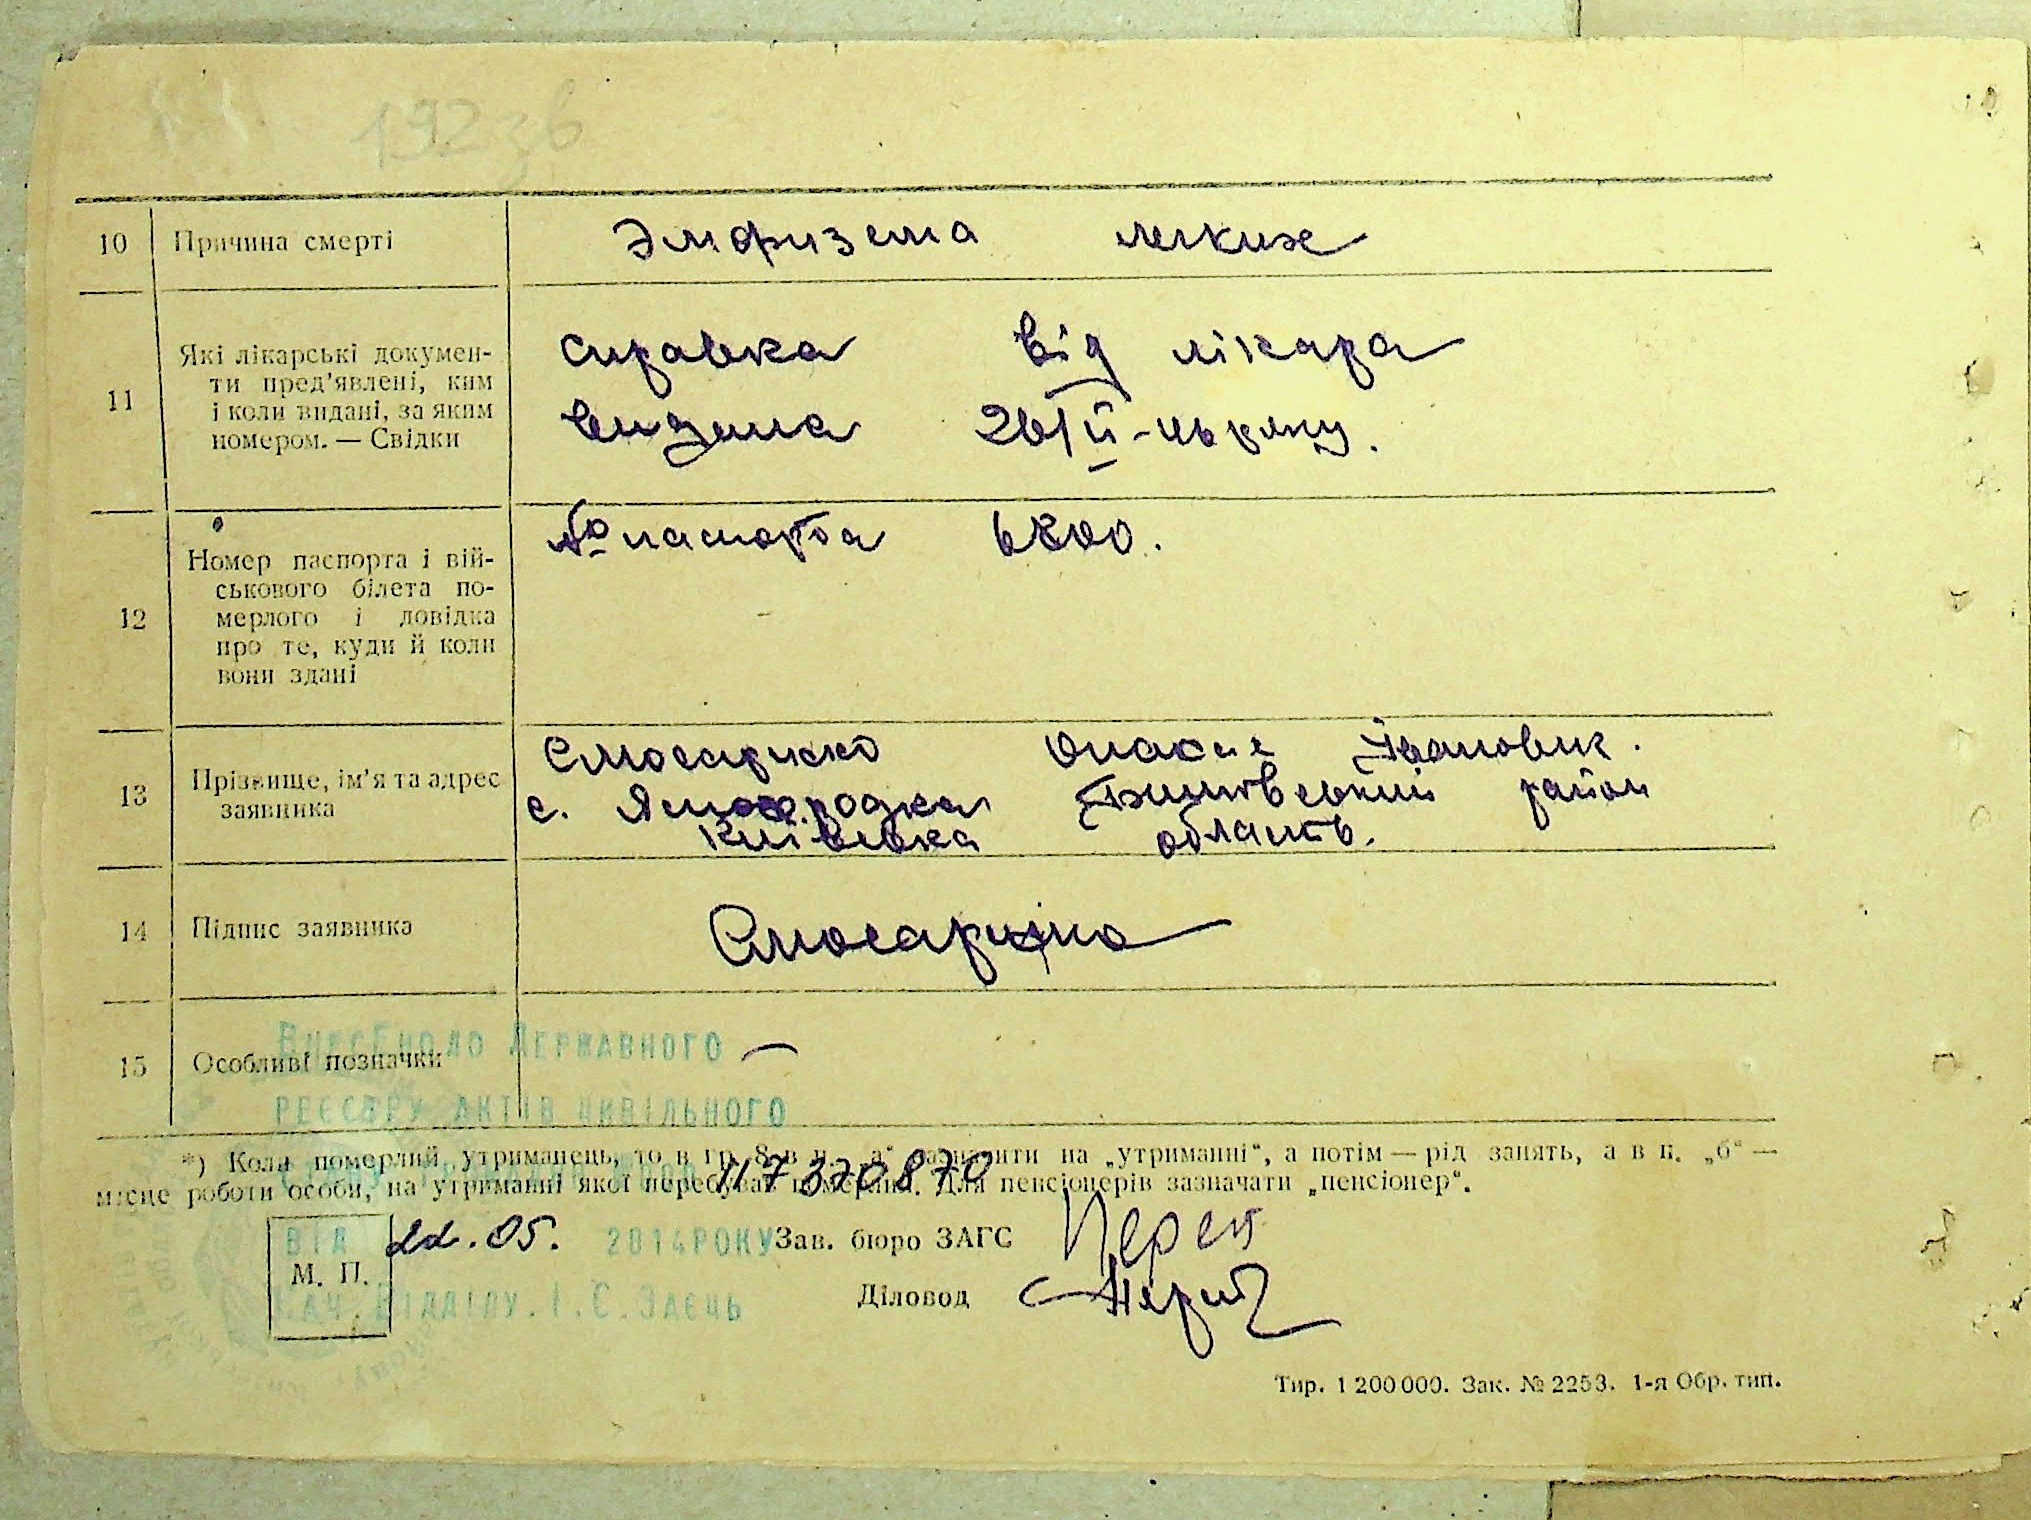 192зв
10 Причина смерті Эмфизема легких
11 Які лікарські докумен-
ти пред'явлені, ким
і коли видані, за яким
номером. — Свідки
справка від лікара
видана 26/II
12 Номер паспорта і вій-
ськового білета по-
мерлого і довідка
про те, куди й коли
вони здані
№ паспорта
13 Прізвище, ім'я та адрес
заявника
Івановик.
с. Ясногородка район
Київська область.
14 Підпис заявника
15 Особливі позначки —
Внесено до Державного
реєстру актів цивільного
*) Коли померлий утриманець, то в гр. 8 в п. „а“ зазначити на „утриманні“, а потім — рід занять, а в п. „б“ —
місце роботи особи, на утриманні якої перебував померлий. Для пенсіонерів зазначати „пенсіонер“.
117370870
від 22.05. 2014 року
М. П.
Нач. відділу. І. С. Заєць
Зав. бюро ЗАГС
Діловод
Тир. 1 200 000. Зак. № 2253. 1-я Обр. тип.